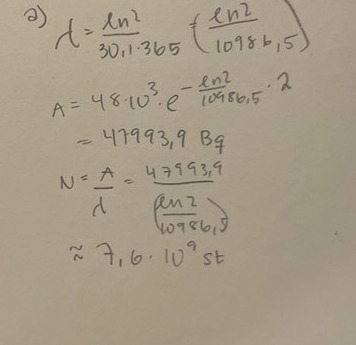 a) λ = ln2 / 30,1·365 = (ln2 / 10986,5)
A = 48·10³·e^(-ln2/10986,5 · 2)
= 47993,9 Bq
N = A/λ = 47993,9 / (ln2 / 10986,5)
≈ 7,6·10⁹ st